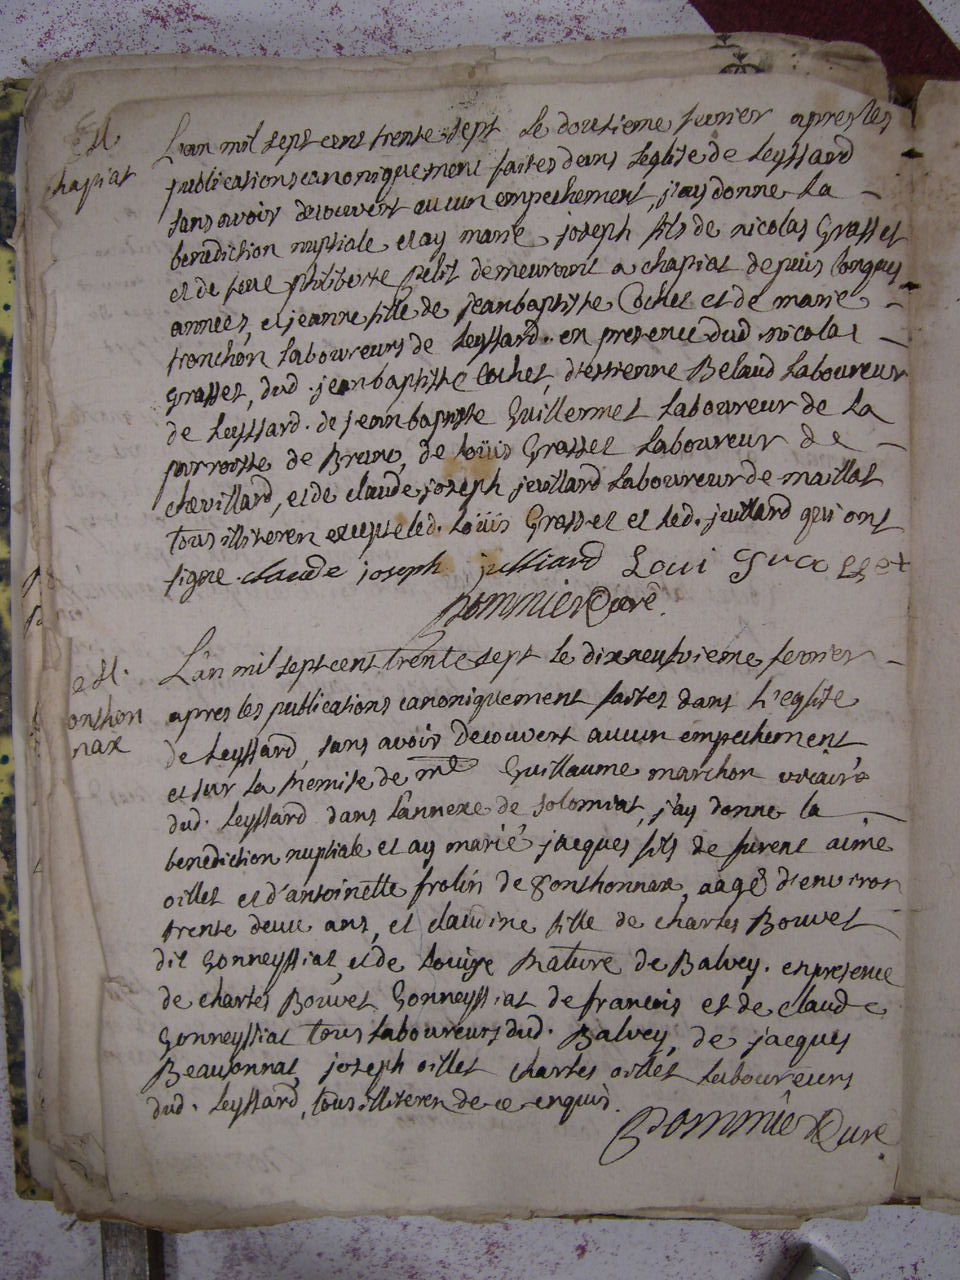 est.
chapiat
L'an mil sept cent trente sept le dousieme fevrier apres les
publications canoniquement faites dans l'eglise de leyssard
sans avoir decouvert aucun empechement, j'ay donne la
benediction nuptiale et ay marie joseph fils de nicolas Grasset
et de feue philiberte petit demeurant a chapiat depuis longues
annees, et jeanne fille de jean baptiste Cochet et de marie
tronchon laboureurs de leyssard. en presence dud. nicolas
Grasset, dud. jean baptiste Cochet, d'estienne Belaud laboureur
de leyssard. de jean baptiste Guillermet laboureur de la
parroisse de , de loüis Grasset laboureur de
chevillard, et de claude joseph juillard laboureur de maillat
tous illiteren excepte led. loüis Grasset et led. juillard qui ont
signe. claude joseph julliard Loui Grasset
Pommier Cure.
est.
onthon
nax
L'an mil sept cent trente sept le dixneufvieme fevrier
apres les publications canoniquement faites dans l'eglise
de leyssard, sans avoir decouvert aucun empechement
et sur la remise de mre Guillaume marchon vicaire
dud. leyssard dans l'annexe de solomiat, j'ay donne la
benediction nuptiale et ay marié jacques fils de furent aimé
oillet et d'antoinette frolin de gonthonnax, aagé d'environ
trente deux ans, et claudine fille de charles Bouvet
dit Gonneyssiat, et de louise nature de Balvey. en presence
de charles Bouvet Gonneyssiat de francois et de claude
Gonneyssiat tous laboureurs dud. Balvey, de jacques
Beauonnat, joseph oillet charles oillet laboureurs
dud. leyssard, tous illiteren de ce enquis.
Pommier Cure